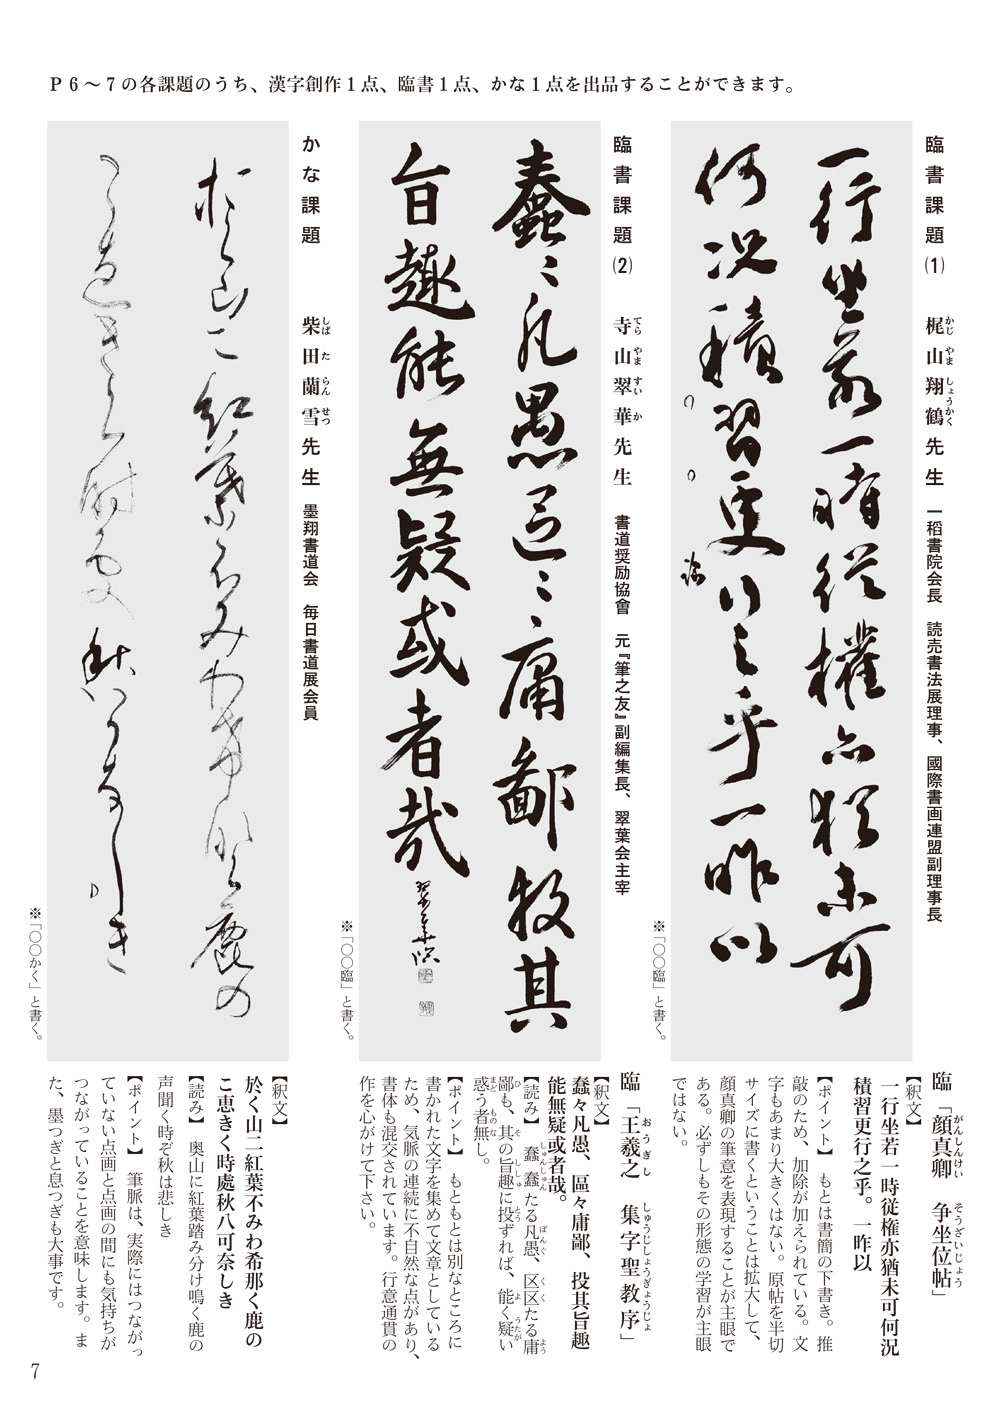 P6～7の各課題のうち、漢字創作1点、臨書1点、かな1点を出品することができます。
臨書課題(1)　梶山翔鶴先生　一稻書院会長　読売書法展理事、國際書画連盟副理事長
かじ やま しょうかく
一行坐若一時従權亦猶未可
何況積習更行之乎一昨以
※「〇〇臨」と書く。
臨「顔真卿　争坐位帖」
がんしんけい　そうざいじょう
【釈文】
一行坐若一時従権亦猶未可何況
積習更行之乎。一昨以
【ポイント】　もとは書簡の下書き。推
敲のため、加除が加えられている。文
字もあまり大きくはない。原帖を半切
サイズに書くということは拡大して、
顔真卿の筆意を表現することが主眼で
ある。必ずしもその形態の学習が主眼
ではない。
臨書課題(2)　寺山翠華先生　書道奨励協會　元『筆之友』副編集長、翠葉会主宰
てら やま すい か
蠢〻凡愚區〻庸鄙投其
旨趣能無疑或者哉
翠華臨
※「〇〇臨」と書く。
臨「王羲之　集字聖教序」
おうぎし　しゅうじしょうぎょうじょ
【釈文】
蠢々凡愚、區々庸鄙、投其旨趣
能無疑或者哉。
【読み】　蠢蠢たる凡愚、区区たる庸
しゅんしゅん　ぼんぐ　くく　よう
鄙も、其の旨趣に投ずれば、能く疑い
ひ　そ　ししゅ　とう　よ　うたが
惑う者無し。
まど　ものな
【ポイント】　もともとは別なところに
書かれた文字を集めて文章としている
ため、気脈の連続に不自然な点があり、
書体も混交されています。行意通貫の
作を心がけて下さい。
かな課題　柴田蘭雪先生　墨翔書道会　毎日書道展会員
しば た らん せつ
於く山二紅葉不みわ希那く鹿の
こ恵きく時處秋八可奈しき
※「〇〇かく」と書く。
【釈文】
於く山二紅葉不みわ希那く鹿の
こ恵きく時處秋八可奈しき
【読み】　奥山に紅葉踏み分け鳴く鹿の
声聞く時ぞ秋は悲しき
【ポイント】　筆脈は、実際にはつながっ
ていない点画と点画の間にも気持ちが
つながっていることを意味します。ま
た、墨つぎと息つぎも大事です。
7